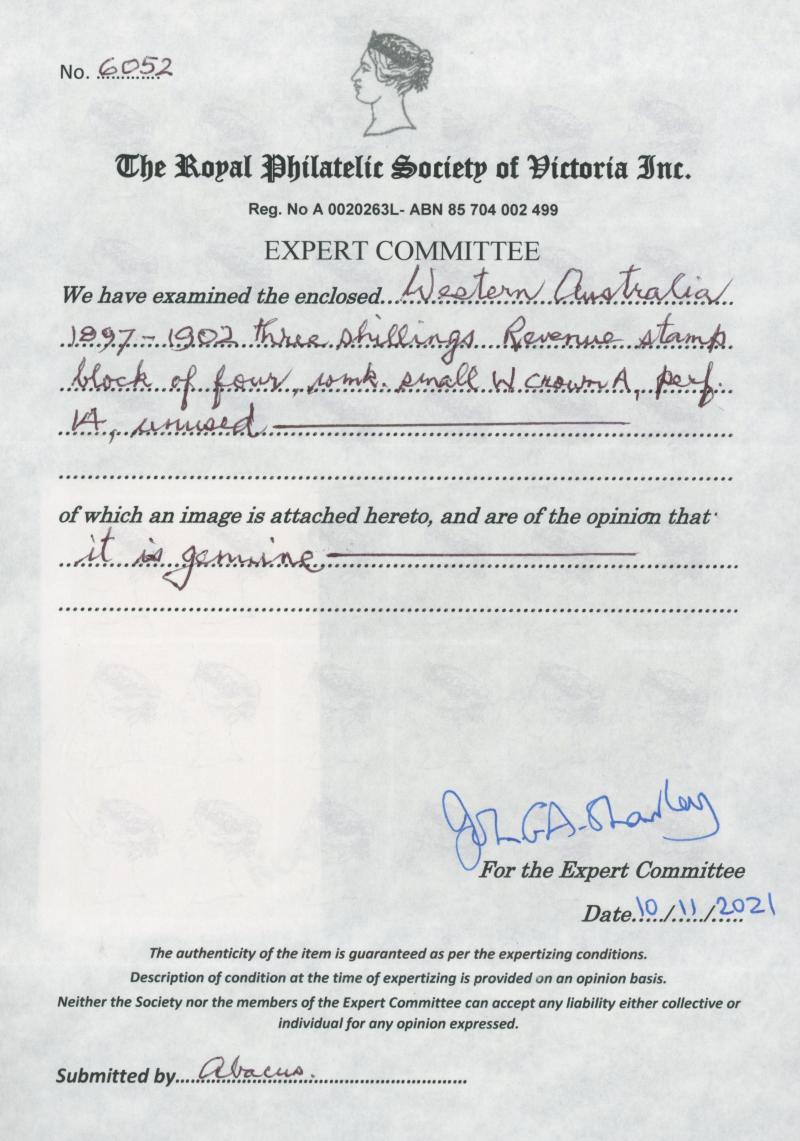 No. 6052
The Royal Philatelic Society of Victoria Inc.
Reg. No A 0020263L- ABN 85 704 002 499
EXPERT COMMITTEE
We have examined the enclosed Western Australia
1897-1902 three shillings Revenue stamp
block of four, wmk. small W crown A, perf.
14, unused
of which an image is attached hereto, and are of the opinion that
it is genuine
For the Expert Committee
Date 10/11/2021
The authenticity of the item is guaranteed as per the expertizing conditions.
Description of condition at the time of expertizing is provided on an opinion basis.
Neither the Society nor the members of the Expert Committee can accept any liability either collective or
individual for any opinion expressed.
Submitted by Abacus.